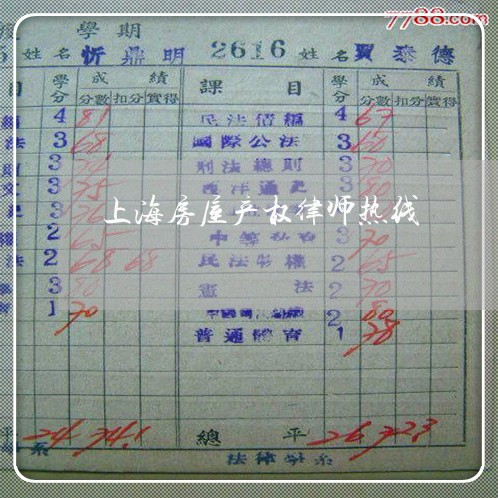 7788.com
學期
5 姓名 忻鼎明 2616 姓名 賈泰德
目 學分 成績 課目 學分 成績
分數 扣分 實得 分數 扣分 實得
4 81 民法債編 4 67
法 3 68 國際公法 3 60
3 刑法總則 3 70
3 75 西洋通史 3 80
3
上海房屋产权律师热线
2 65 3 70
法 2 68 68 民法物權 2 65
3 80 憲法 2 70
1 70 2 80
普通體育 1 78
平 24 74.1 總平 26 72.3
系 法律學系